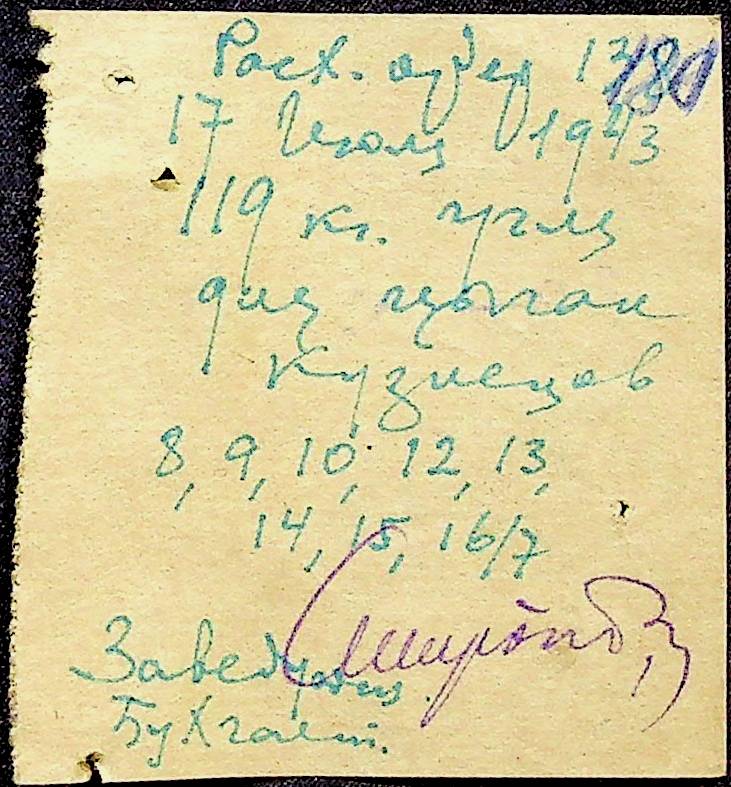 Расх. ордер 180
17 Июля 1943
119 кг. угля
для цыган
Кузнецов
8, 9, 10, 12, 13,
14, 15, 16/7
Заведующ.
Бухгалт.